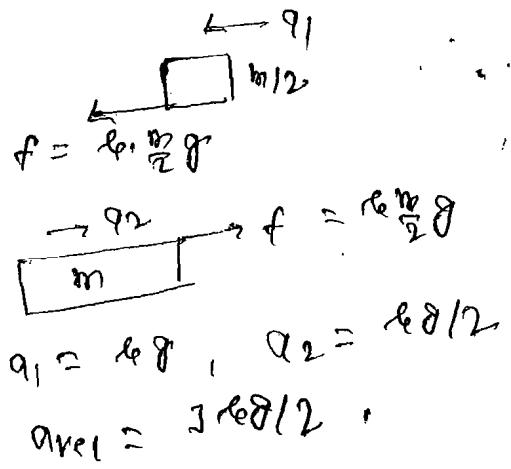 a1
m/2
f = k. m/2 g
a2
f = k m/2 g
m
a1 = kg, a2 = kg/2
arel = 3kg/2.